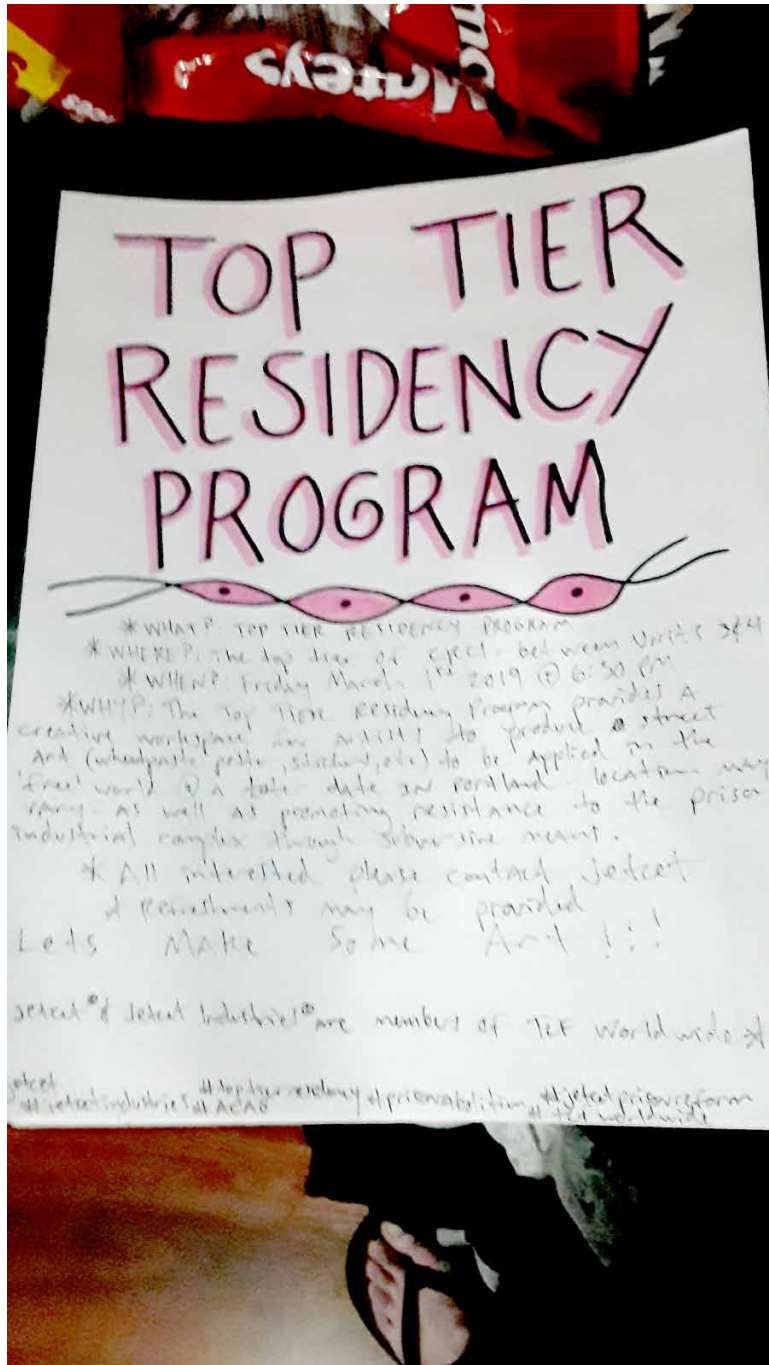 Mateys
TOP TIER
RESIDENCY
PROGRAM
*WHAT?: TOP TIER RESIDENCY PROGRAM
*WHERE?: The top tier of between Units 3&4
*WHEN?: Friday March 1st 2019 @ 6:30 PM
*WHY?: The Top Tier Residency Program provides A
creative workspace for artists to produce street
Art (wheatpaste, etc) to be applied in the
'free' world @ a date in Portland location may
vary. As well as promoting resistance to the prison
industrial complex through subversive means.
*All interested please contact Jetcet
* Refreshments may be provided
Lets Make Some Art!!!
Jetcet® & Jetcet Industries® are members of Worldwide*
jetcet #toptierresidency #prisonabolition #jetcetprisonreform
#jetcetindustries #ACAB